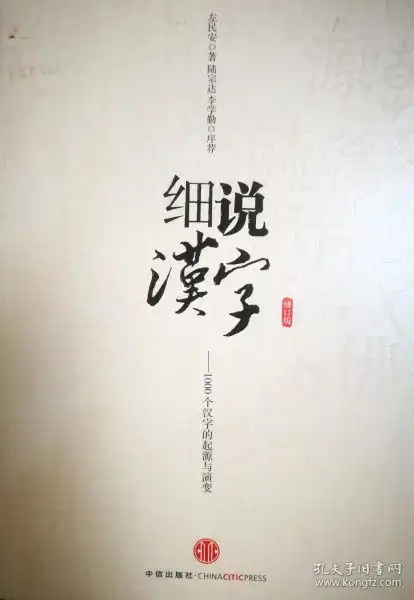 左民安◎著 陆宗达 李学勤◎序荐
细说
漢字
修订版
——1000个汉字的起源与演变
中信出版社·CHINACITICPRESS
孔夫子旧书网
www.kongfz.com